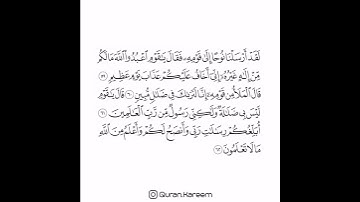 لَقَدْ أَرْسَلْنَا نُوحًا إِلَىٰ قَوْمِهِۦ فَقَالَ يَـٰقَوْمِ ٱعْبُدُوا۟ ٱللَّهَ مَا لَكُم
مِّنْ إِلَـٰهٍ غَيْرُهُۥٓ إِنِّىٓ أَخَافُ عَلَيْكُمْ عَذَابَ يَوْمٍ عَظِيمٍ ٥٩
قَالَ ٱلْمَلَأُ مِن قَوْمِهِۦٓ إِنَّا لَنَرَىٰكَ فِى ضَلَـٰلٍ مُّبِينٍ ٦٠ قَالَ يَـٰقَوْمِ
لَيْسَ بِى ضَلَـٰلَةٌ وَلَـٰكِنِّى رَسُولٌ مِّن رَّبِّ ٱلْعَـٰلَمِينَ ٦١
أُبَلِّغُكُمْ رِسَـٰلَـٰتِ رَبِّى وَأَنصَحُ لَكُمْ وَأَعْلَمُ مِنَ ٱللَّهِ
مَا لَا تَعْلَمُونَ ٦٢
Quran.Kareem